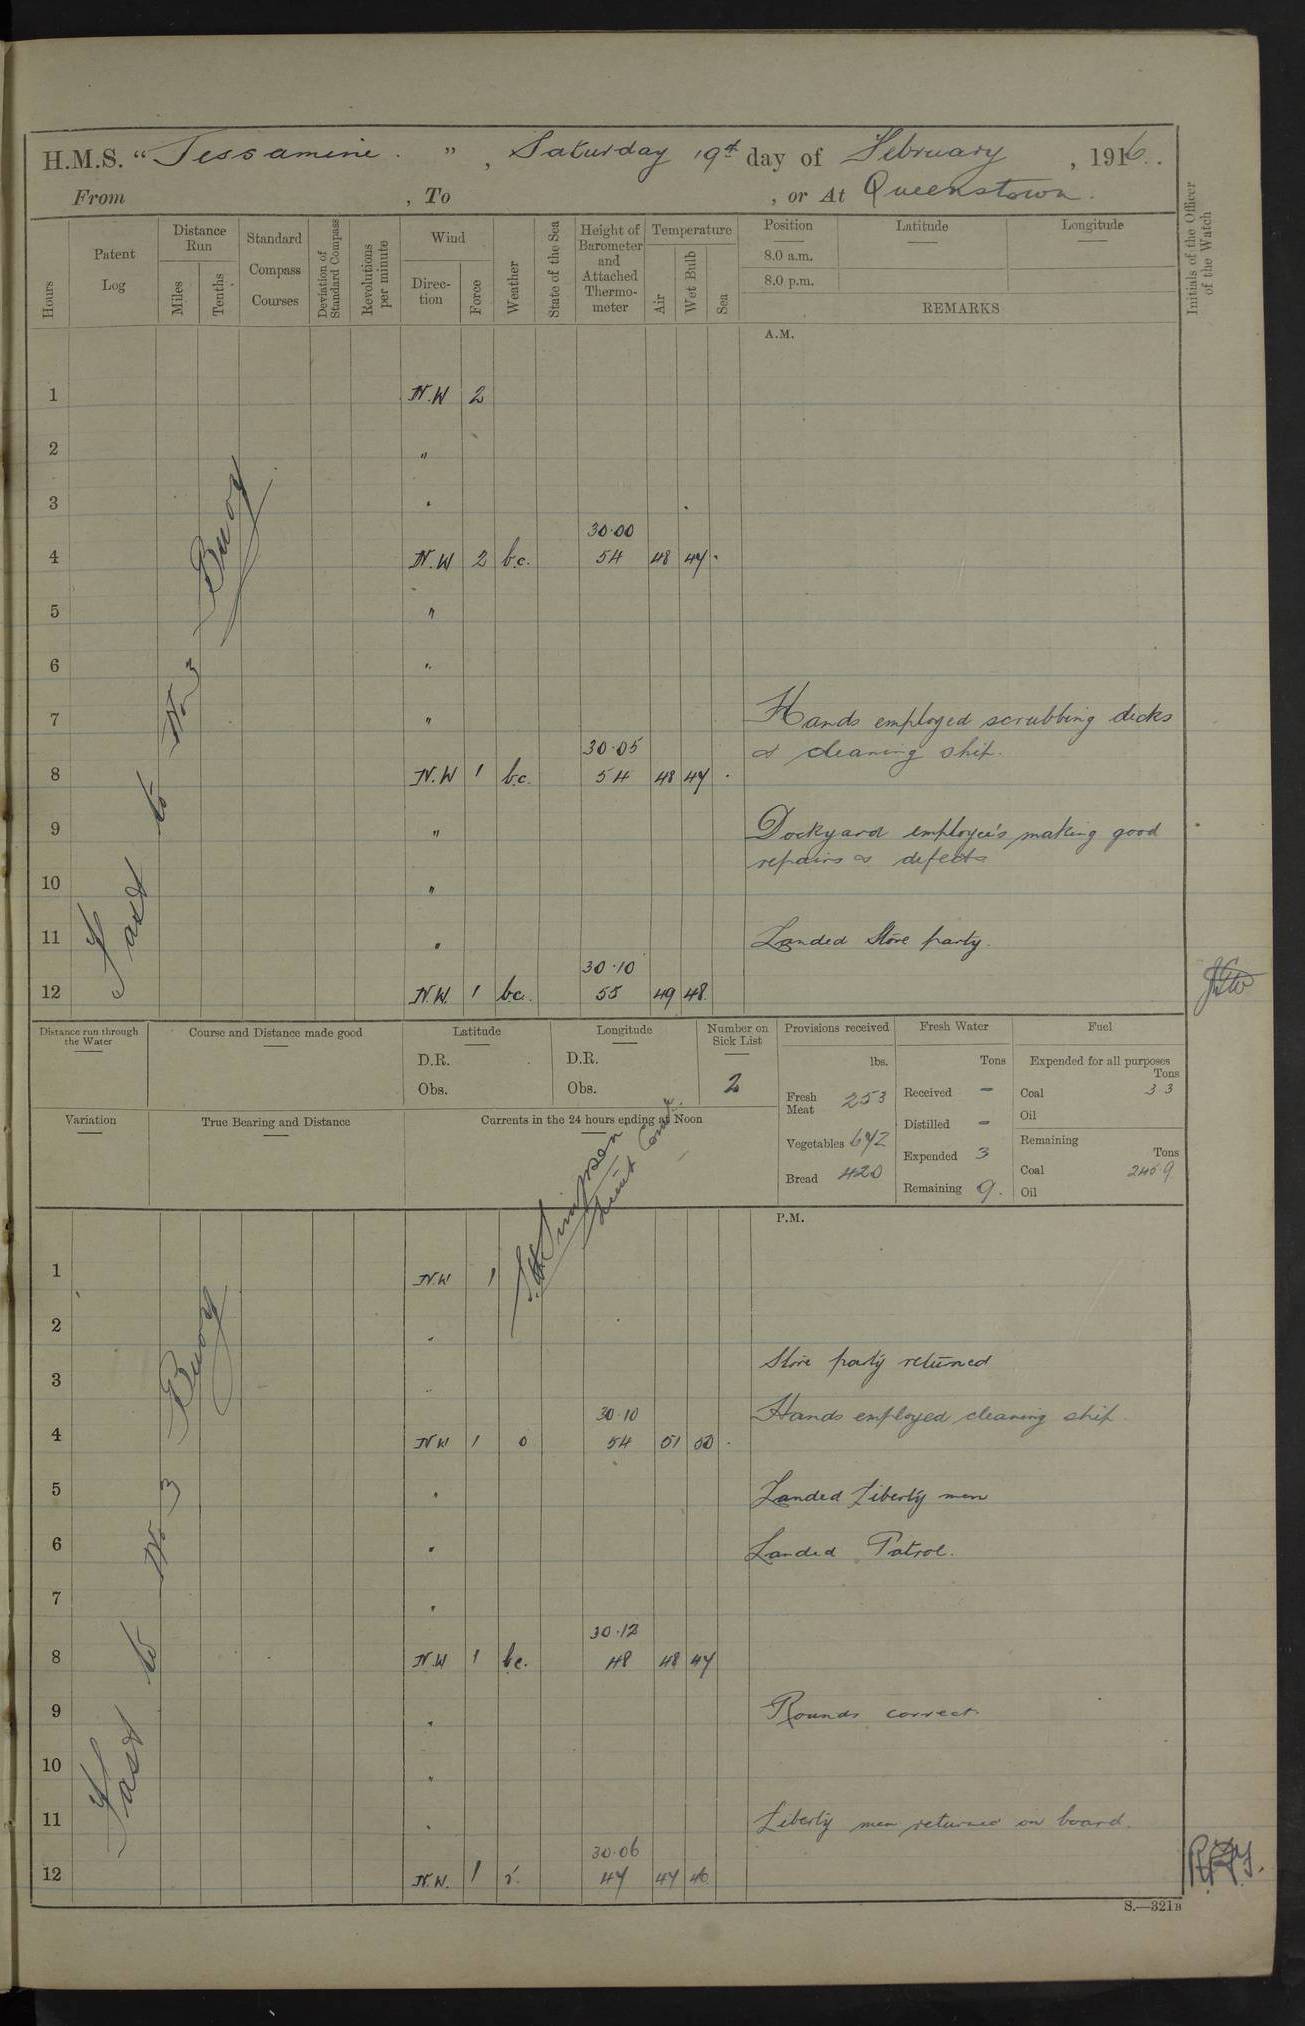 H.M.S. "Jessamine.", Saturday 19th day of February, 1916.
From , To , or At Queenstown.
Hours
Patent Log
Distance Run
Miles
Tenths
Standard Compass Courses
Deviation of Standard Compass
Revolutions per minute
Wind
Direction
Force
Weather
State of the Sea
Height of Barometer and Attached Thermometer
Temperature
Air
Wet Bulb
Sea
Position
Latitude
Longitude
8.0 a.m.
8.0 p.m.
REMARKS
Initials of the Officer of the Watch
A.M.
Fast to No 3 Buoy
1 N.W 2
2 "
3 "
30.00
4 N.W 2 b.c. 54 48 47
5 "
6 "
7 " Hands employed scrubbing decks
30.05 & cleaning ship.
8 N.W 1 b.c. 54 48 47
9 " Dockyard employee's making good
repairs & defects
10 "
11 " Landed Store party.
30.10
12 N.W. 1 bc. 55 49 48
Distance run through the Water
Course and Distance made good
Latitude
D.R.
Obs.
Longitude
D.R.
Obs.
Number on Sick List
2
Provisions received
lbs.
Fresh Meat 253
Vegetables 642
Bread 420
Fresh Water
Tons
Received -
Distilled -
Expended 3
Remaining 9.
Fuel
Expended for all purposes
Tons
Coal 3 3
Oil
Remaining
Tons
Coal
Oil
Variation
True Bearing and Distance
Currents in the 24 hours ending at Noon
Simpson
Lieut Comdr.
P.M.
Fast to No 3 Buoy
1 N.W 1
2 "
Store party returned
3 "
30.10 Hands employed cleaning ship.
4 N W 1 o 54 51 50
5 " Landed Liberty men
6 " Landed Patrol.
7 "
30.12
8 N.W 1 b.c. 48 48 47
9 " Rounds correct.
10 "
11 " Liberty men returned on board.
30.06
12 N.W. 1 47 47 46
S.—321B